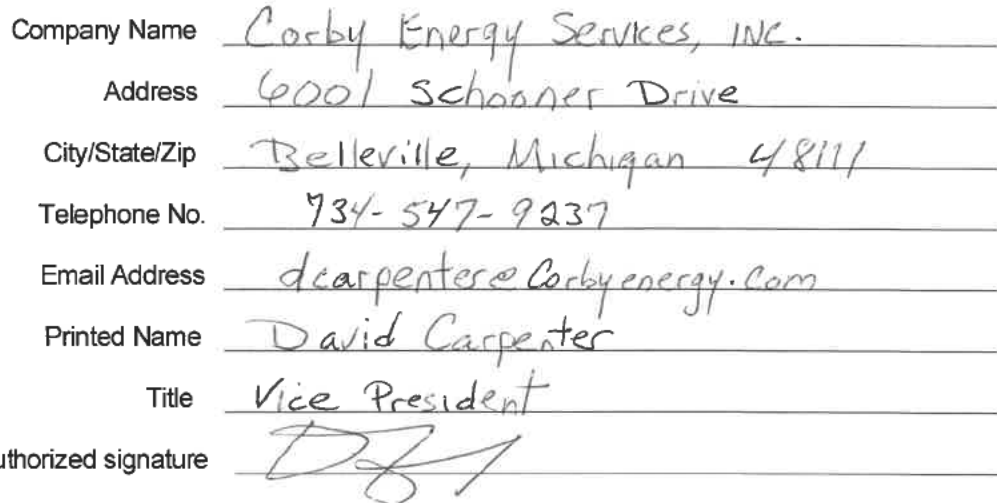 Company Name Corby Energy Services, INC.
Address 6001 Schooner Drive
City/State/Zip Belleville, Michigan 48111
Telephone No. 734-547-9237
Email Address dcarpenter@Corbyenergy.com
Printed Name David Carpenter
Title Vice President
uthorized signature